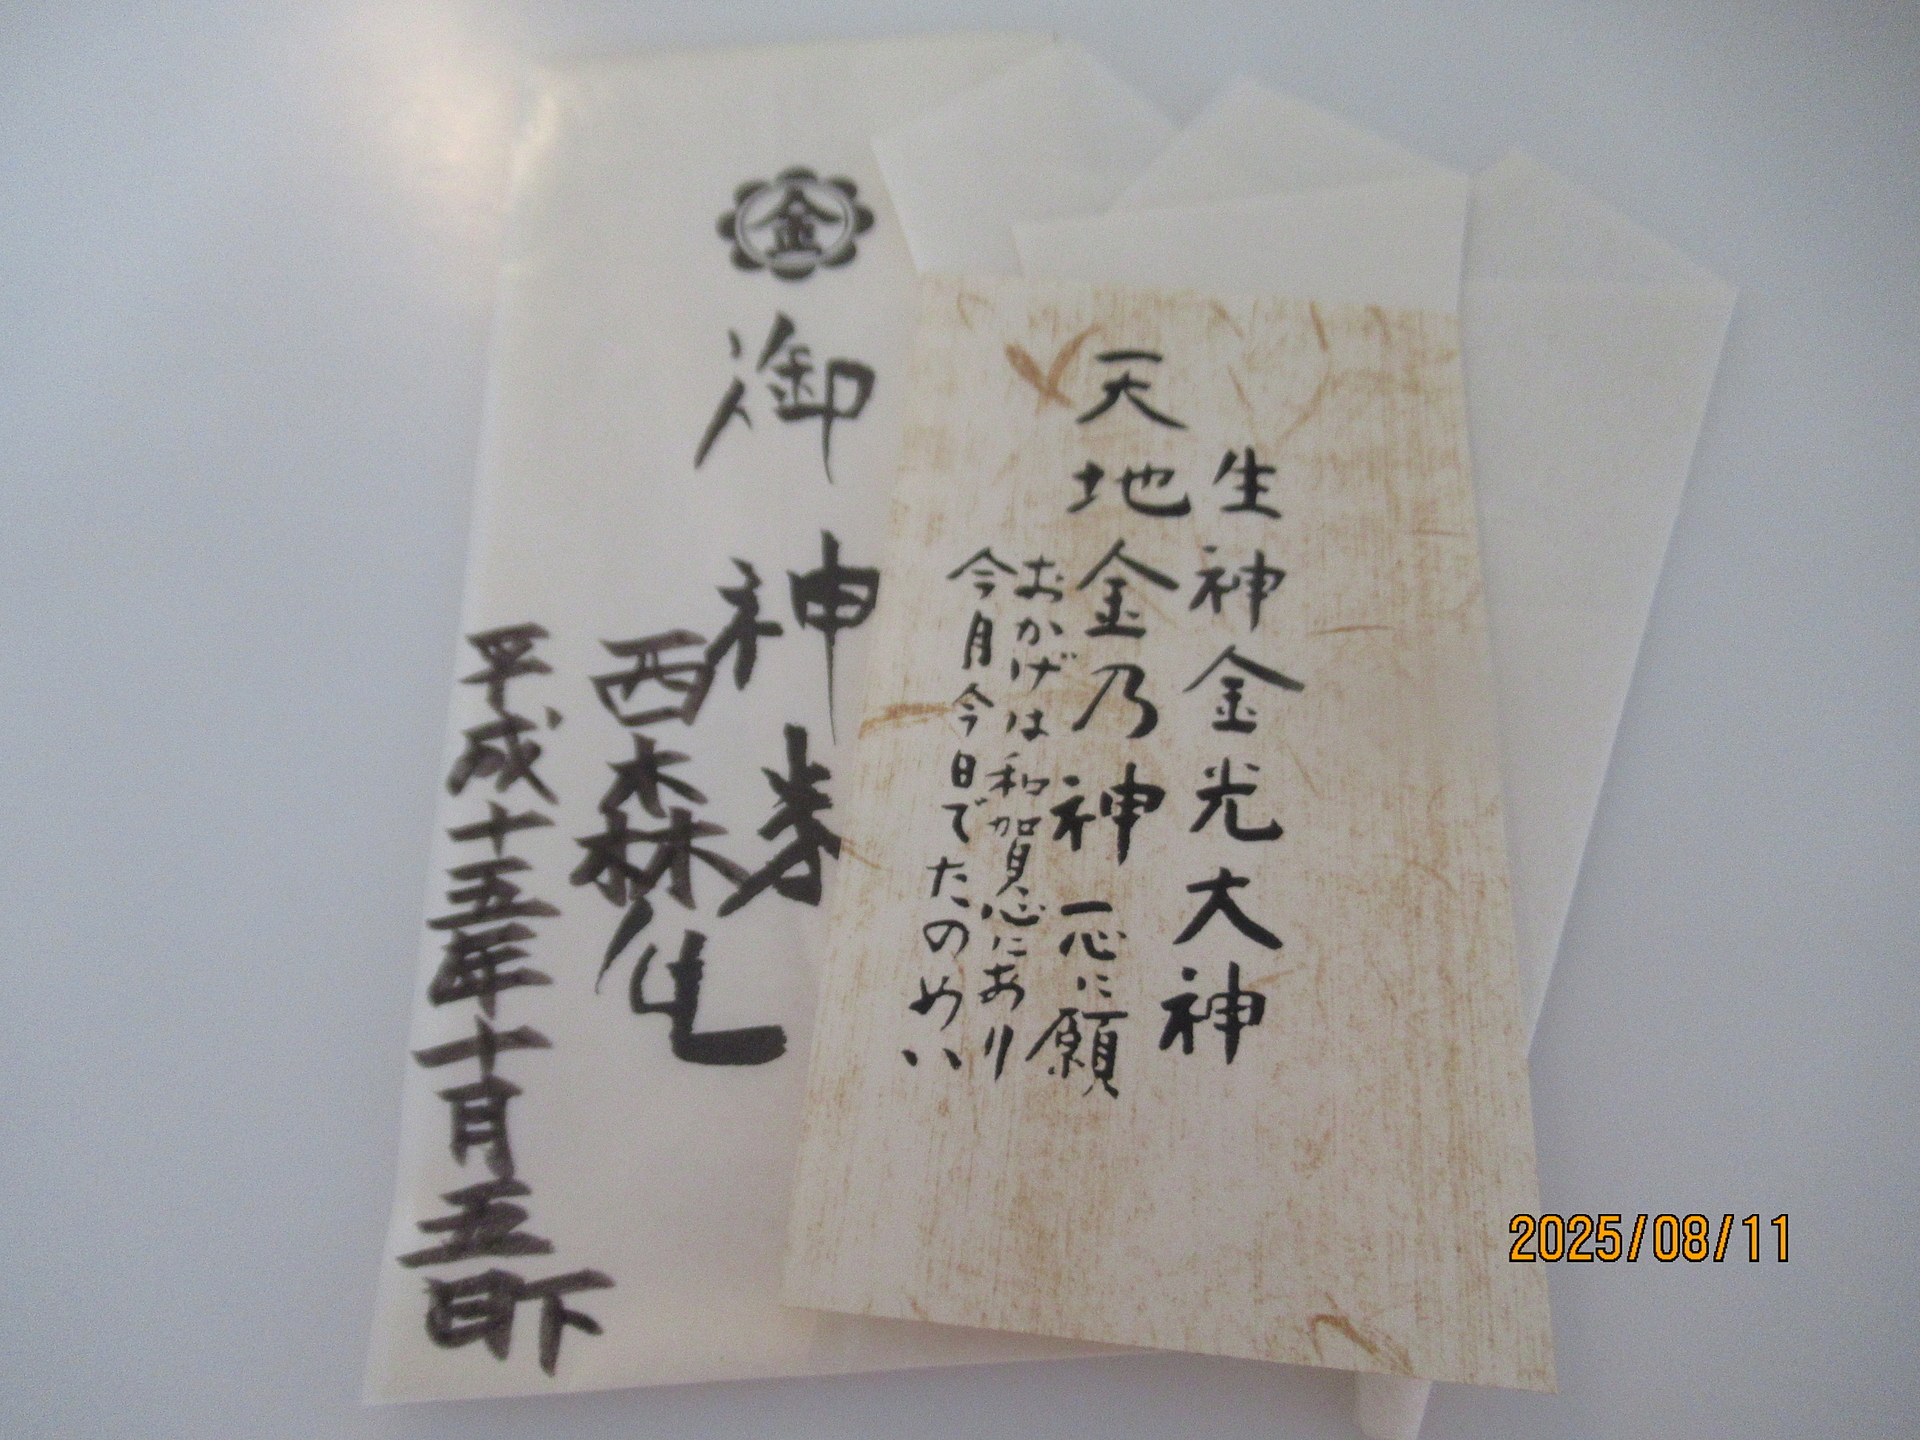 生神金光大神
天地金乃神一心に願
おかげは和賀心にあり
今月今日でたのめい
金
御神券
西森
平成十五年十月五日
下
2025/08/11